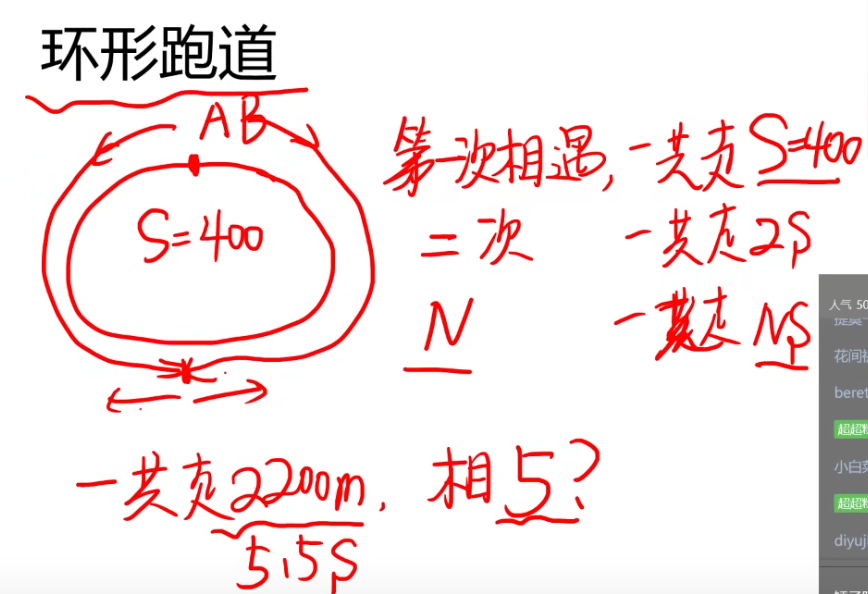 环形跑道
A B
S=400
第一次相遇,一共走S=400
二次 一共走2S
N 一共走NS
一共走2200m,相5?
5.5S
人气 50
花间
beret
超超
小白菜
超超
diyuj